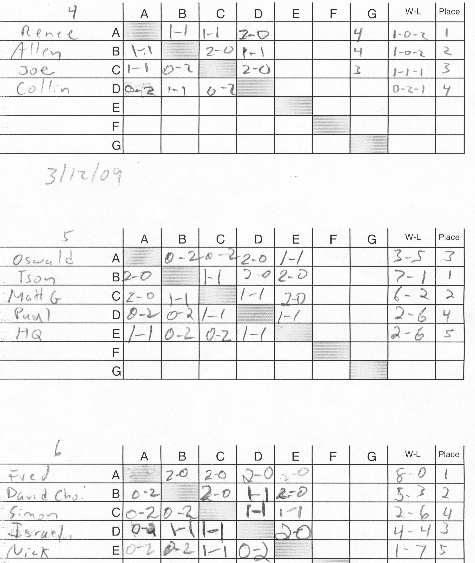 4 A B C D E F G W-L Place
Renee A 1-1 1-1 2-0 4 1-0-2 1
Allen B 1-1 2-0 1-1 4 1-0-2 2
Joe C 1-1 0-2 2-0 3 1-1-1 3
Collin D 0-2 1-1 0-2 0-2-1 4
E
F
G
3/12/09
5 A B C D E F G W-L Place
Oswald A 0-2 0-2 2-0 1-1 3-5 3
Tson B 2-0 1-1 2-0 2-0 7-1 1
Matt G C 2-0 1-1 1-1 2-0 6-2 2
Paul D 0-2 0-2 1-1 1-1 2-6 4
HQ E 1-1 0-2 0-2 1-1 2-6 5
F
G
6 A B C D E F G W-L Place
Fred A 2-0 2-0 2-0 2-0 8-0 1
David Choi B 0-2 2-0 1-1 2-0 5-3 2
Simon C 0-2 0-2 1-1 1-1 2-6 4
Israel D 0-2 1-1 1-1 2-0 4-4 3
Nick E 0-2 0-2 1-1 0-2 1-7 5